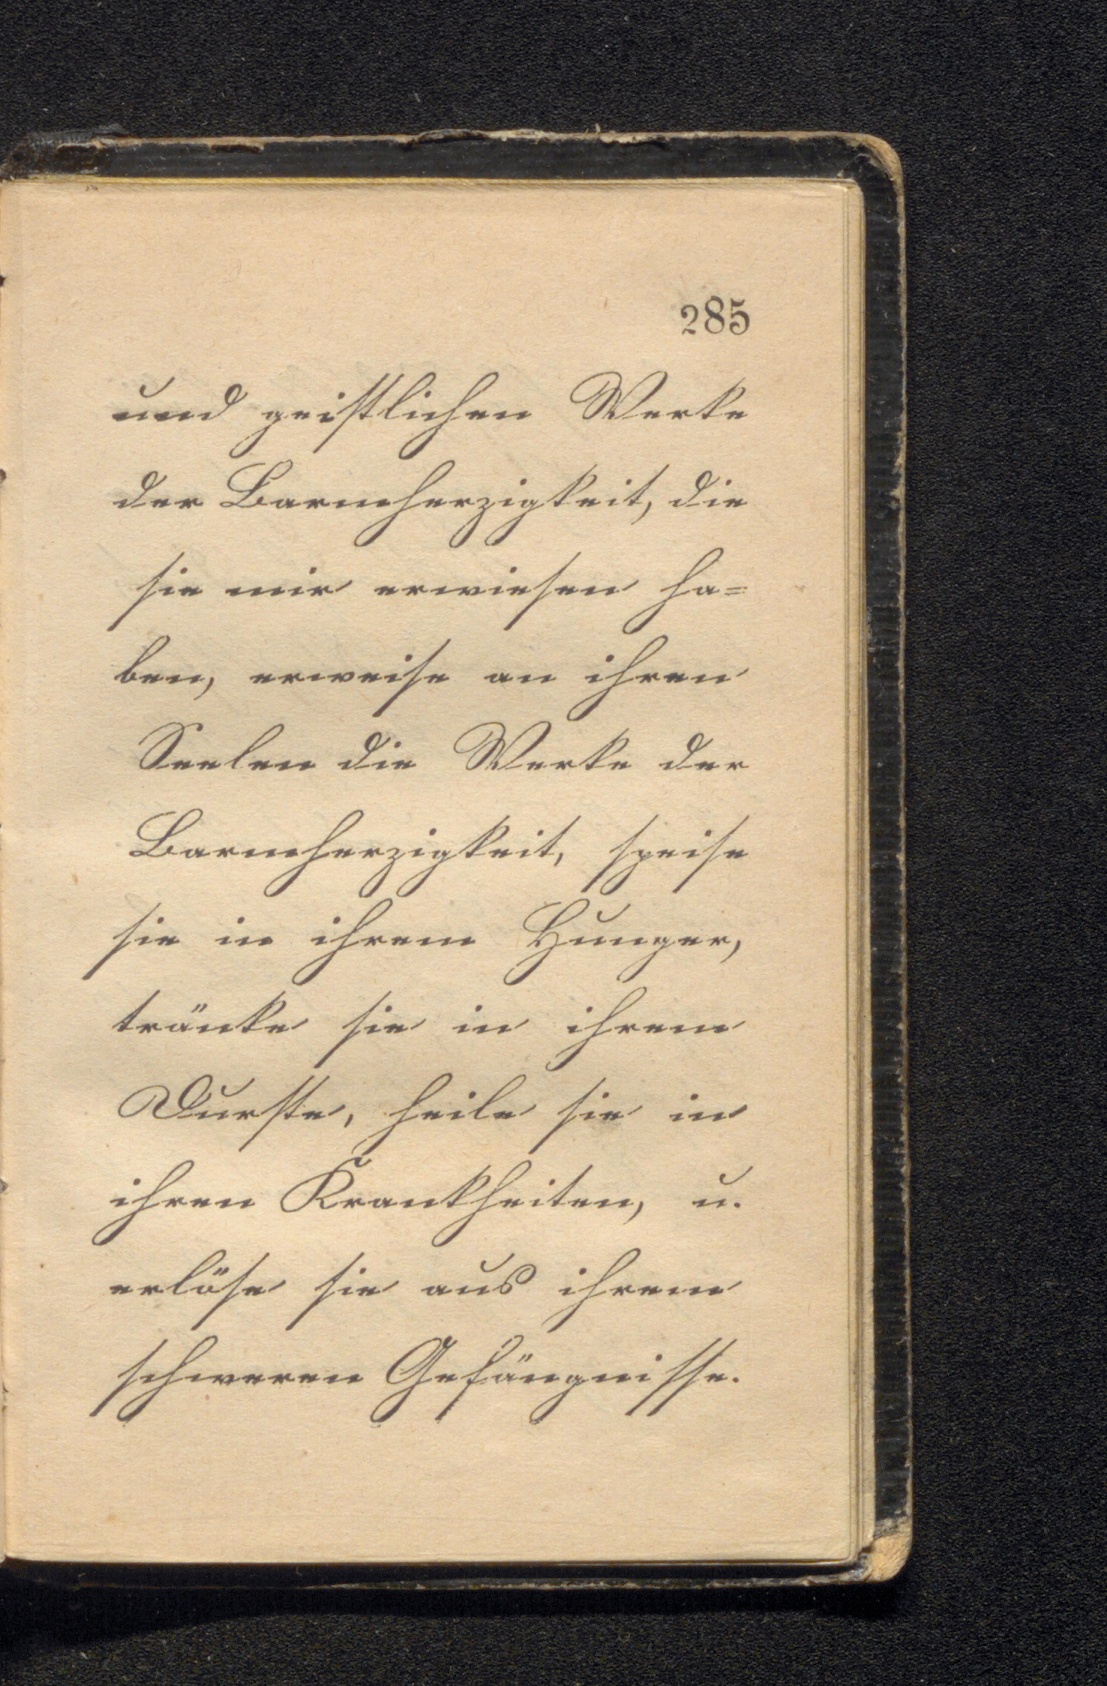 285
und geistlichen Werke
der Barmherzigkeit, die
sie mir erwiesen ha=
ben, erweise an ihren
Seelen die Werke der
Barmherzigkeit, speise
sie in ihrem Hunger,
tränke sie in ihrem
Durste, heile sie in
ihren Krankheiten, u.
erlöse sie aus ihrem
schweren Gefängnisse.